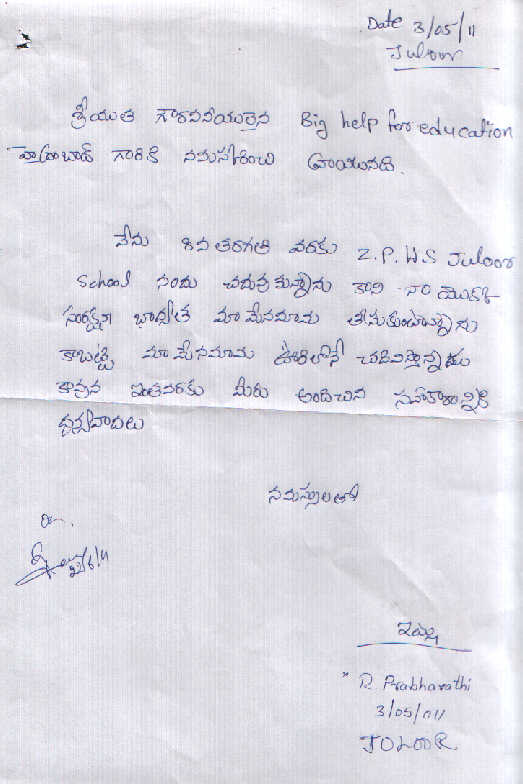 Date 3/05/11
Juloor
శ్రీయుత గౌరవనీయులైన Big help for education
హైద్రాబాద్ గారికి నమస్కరించి వ్రాయునది.
నేను 8వ తరగతి వరకు Z.P.H.S Juloor
School నందు చదువుకున్నాను కాని నా యొక్క
సంరక్షణ బాధ్యత మా మేనమామ తీసుకుంటున్నాను
కాబట్టి మా మేనమామ ఊరిలోనే చదివిస్తాన్నడు
కావున ఇంతవరకు మీరు అందించిన సహకారాన్నికి
ధన్యవాదలు
నమస్సులతో
22/6/11
ఇట్లు
R. Prabhavathi
3/05/011
JOLOOR